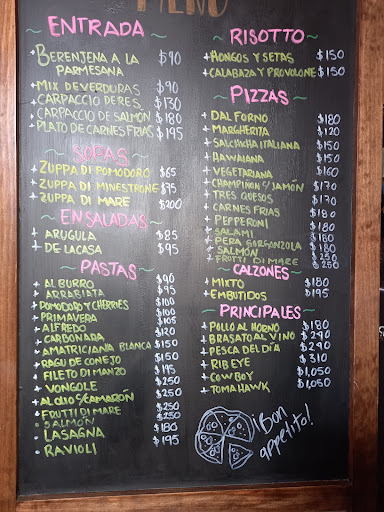 MENU
~ENTRADA~
• BERENJENA A LA PARMESANA $90
+ MIX DE VERDURAS $90
+ CARPACCIO DE RES $130
+ CARPACCIO DE SALMÓN $180
+ PLATO DE CARNES FRIAS $195
~SOPAS~
+ ZUPPA DI POMODORO $65
+ ZUPPA DI MINESTRONE $75
+ ZUPPA DI MARE $200
~ENSALADAS~
+ ARUGULA $85
+ DE LA CASA $95
~PASTAS~
+ AL BURRO $90
+ ARRABIATA $95
+ POMODORO Y CHERRIES $100
+ PRIMAVERA $100
+ ALFREDO $105
+ CARBONARA $120
+ AMATRICIANA BLANCA $150
+ RAGU DE CONEJO $150
+ FILETO DI MANZO $195
• VONGOLE $250
+ AL OLIO S/CAMARÓN $250
+ FRUTTI DI MARE $250
• SALMÓN $250
• LASAGNA $180
• RAVIOLI $195
~RISOTTO~
+ HONGOS Y SETAS $150
+ CALABAZA Y PROVOLONE $150
~PIZZAS~
+ DAL FORNO $180
+ MARGHERITA $120
+ SALCHICHA ITALIANA $150
+ HAWAIANA $150
+ VEGETARIANA $160
+ CHAMPIÑON S/JAMÓN $170
+ TRES QUESOS $170
+ CARNES FRIAS $180
+ PEPPERONI $180
+ SALAMI $180
+ PERA GORGONZOLA $180
+ SALMÓN $250
+ FRUTTI DI MARE $250
~CALZONES~
+ MIXTO $180
+ EMBUTIDOS $195
~PRINCIPALES~
+ POLLO AL HORNO $180
+ BRASATO AL VINO $290
+ PESCA DEL DÍA $290
+ RIB EYE $310
+ COWBOY $1,050
+ TOMAHAWK $1,050
¡Bon
appetito!